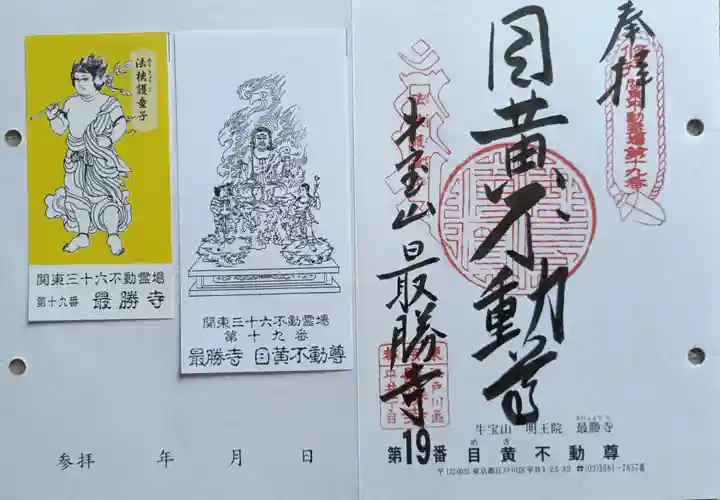 法挟護童子
関東三十六不動霊場
第十九番 最勝寺
関東三十六不動霊場
第十九番
最勝寺 目黄不動尊
参拝 年 月 日
奉拝
目黄不動尊
牛宝山 最勝寺
牛宝山 明王院 最勝寺
第19番 目黄不動尊
〒132-0035 東京都江戸川区平井1-25-32 ☎(03)3681-7857番